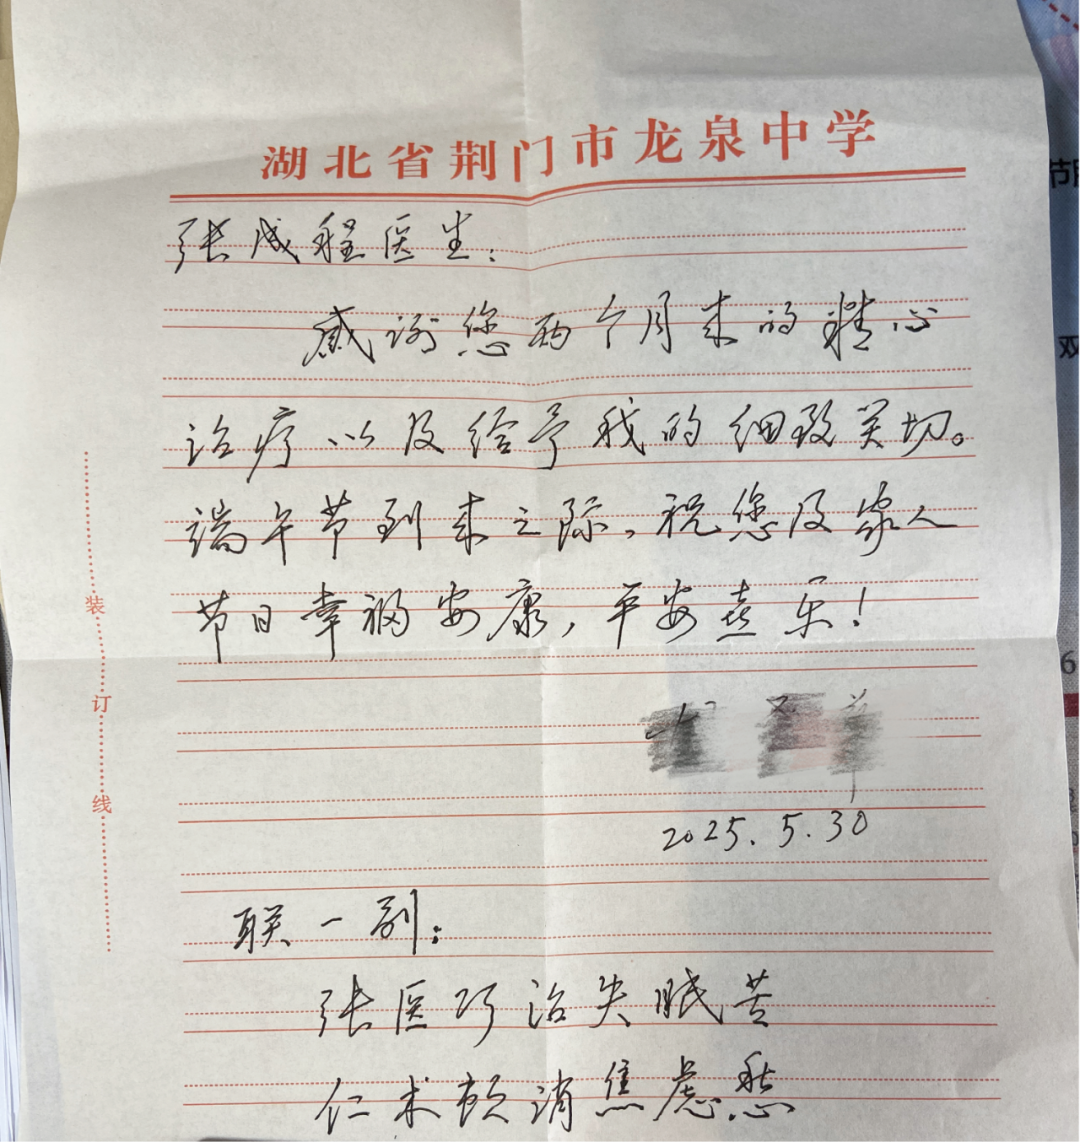 湖北省荆门市龙泉中学
张成程医生：
感谢您两个月来的精心
治疗以及给予我的细致关切。
端午节到来之际，祝您及家人
节日幸福安康，平安喜乐！
2025.5.30
联一副：
张医巧治失眠苦
仁术顿消焦虑愁
装订线
节
双
6